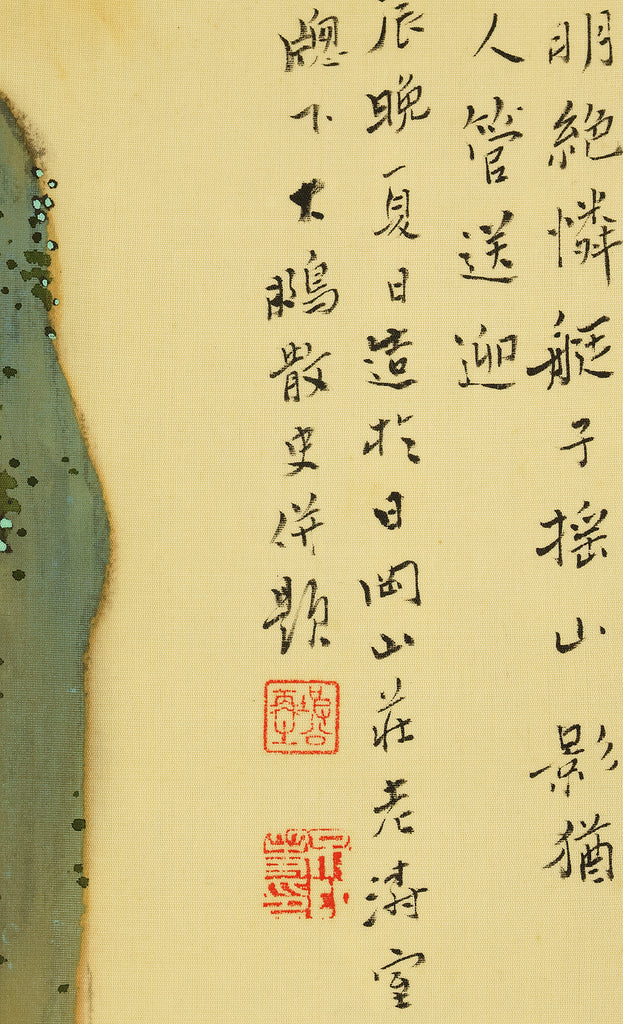 明絶憐艇子搖山影猶
人管送迎
辰晩夏日造於日岡山莊老濤室
窻下大鵬散史併題